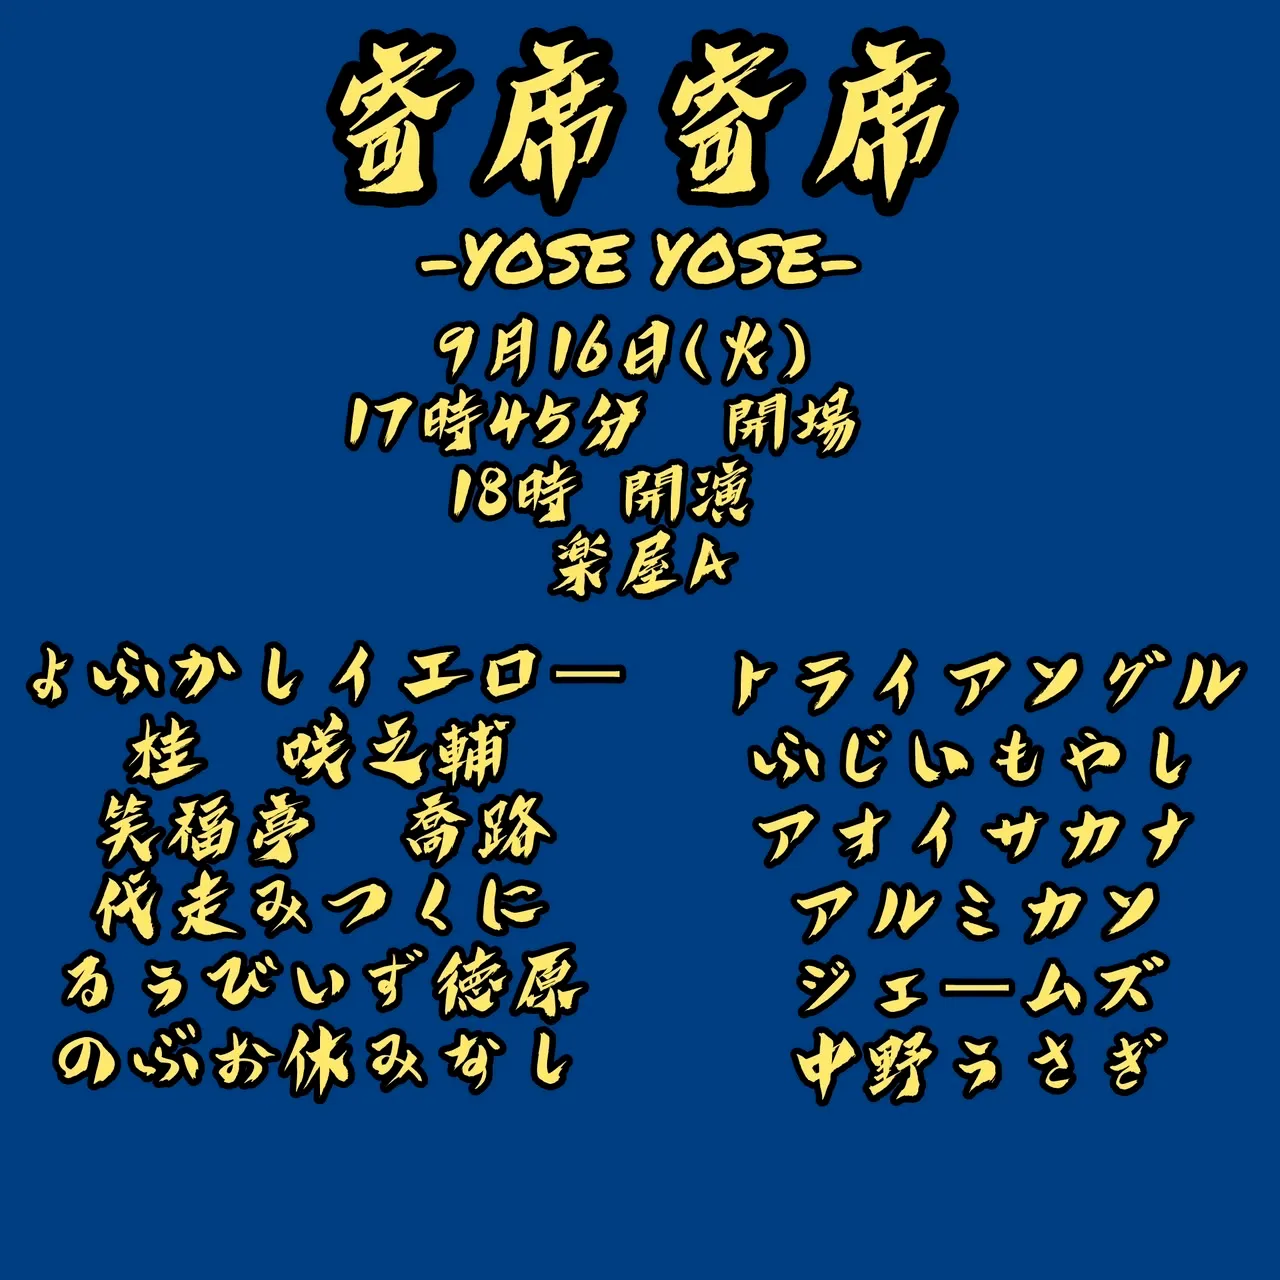 寄席寄席
-YOSE YOSE-
9月16日(火)
17時45分　開場
18時 開演
楽屋A
よふかしイエロー
桂　咲之輔
笑福亭　喬路
代走みつくに
るぅびぃず徳原
のぶお休みなし
トライアングル
ふじいもやし
アオイサカナ
アルミカン
ジェームズ
中野うさぎ